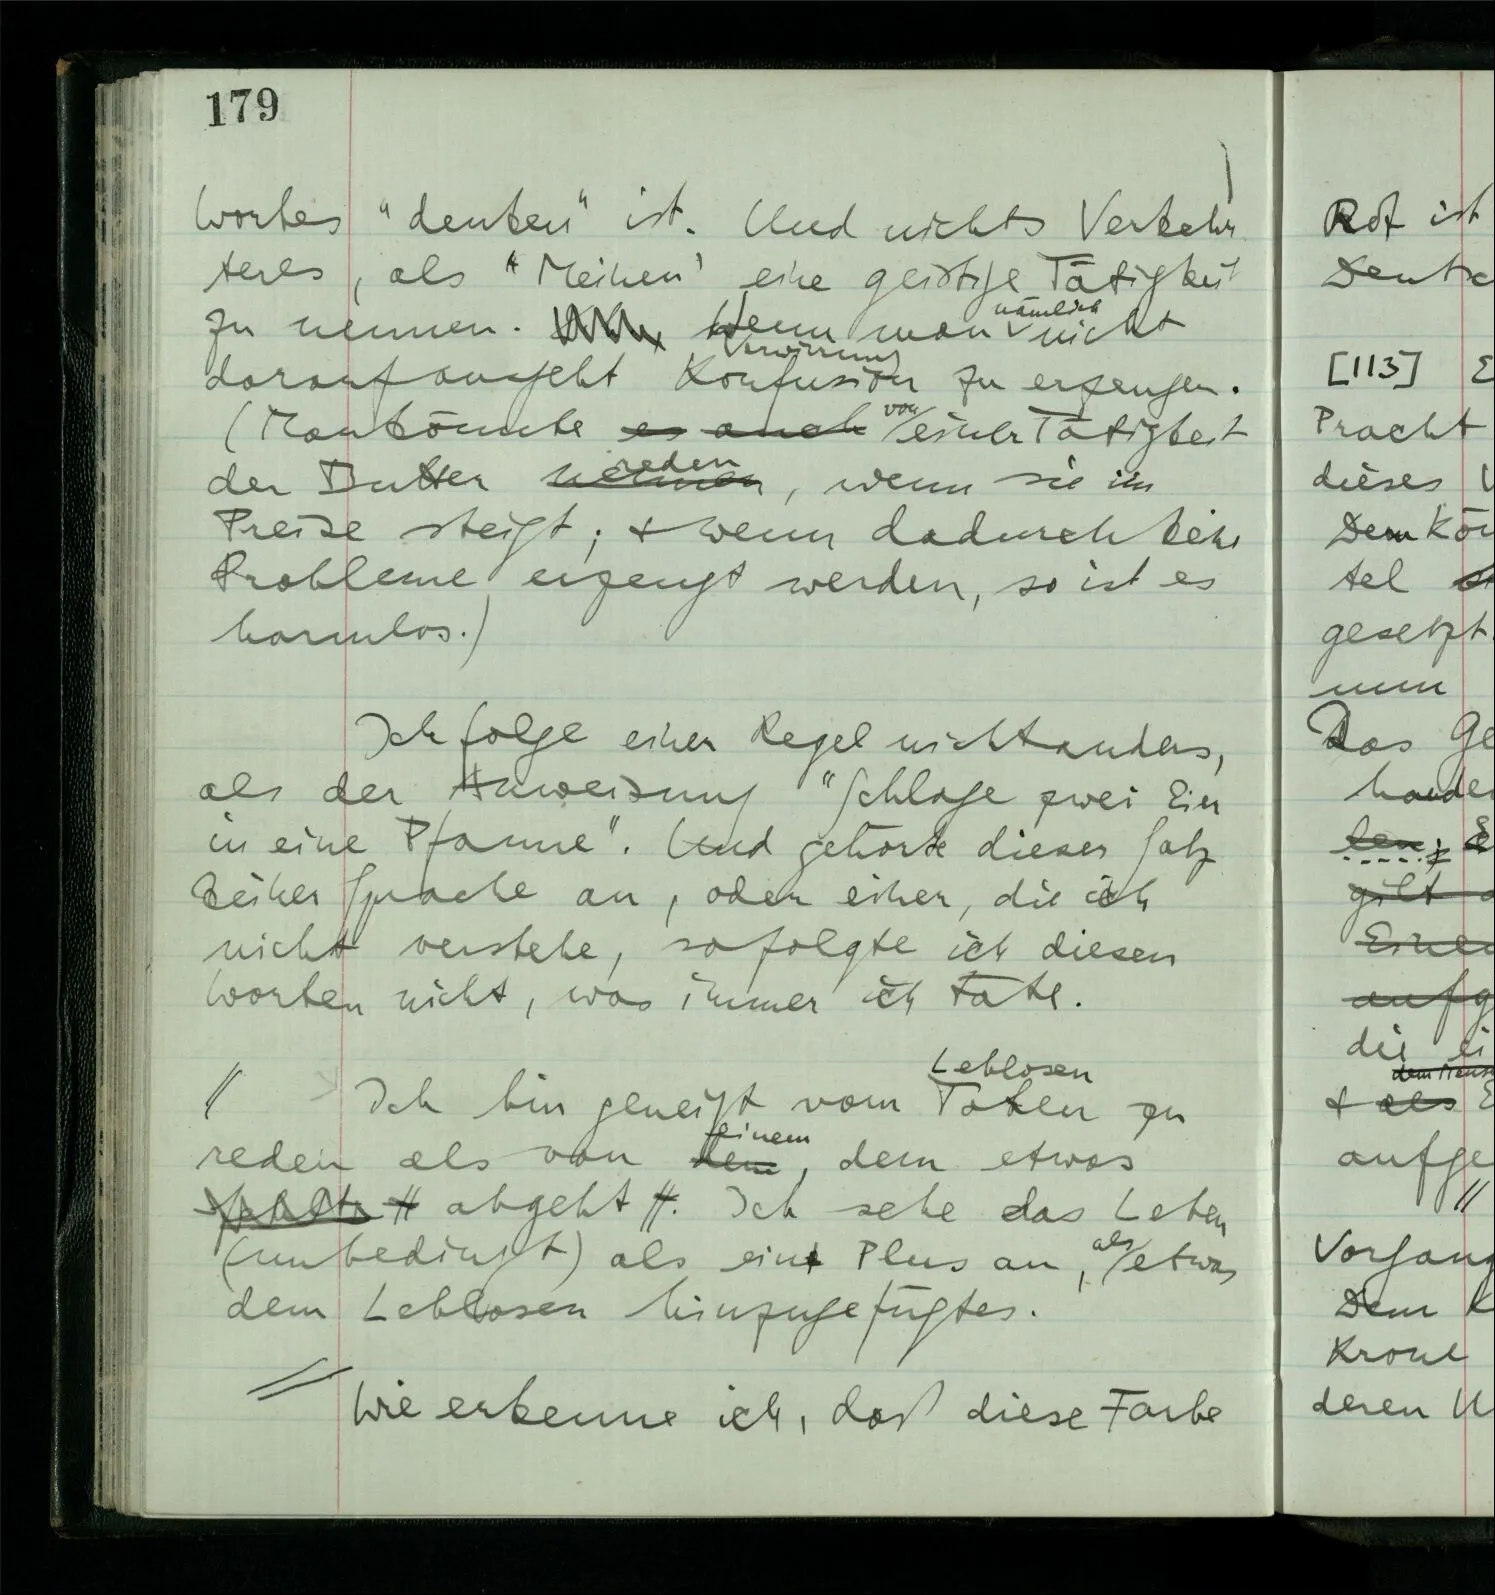 179
Wortes "denken" ist. Und nichts Verkehr-
teres, als "Meinen" eine geistige Tätigkeit
nämlich
zu nennen. Wenn man nicht
Verwirrung
darauf ausgeht Konfusion zu erzeugen.
(Man könnte es auch von einer Tätigkeit
reden
der Butter nennen, wenn sie im
Preise steigt; & wenn dadurch keine
Probleme erzeugt werden, so ist es
harmlos.)
Ich folge einer Regel nicht anders,
als der Anweisung "Schlage zwei Eier
in eine Pfanne". Und gehörte dieser Satz
keiner Sprache an, oder einer, die ich
nicht verstehe, so folgte ich diesen
Worten nicht, was immer ich täte.
Leblosen
// Ich bin geneigt vom Toten zu
einem
reden als von dem, dem etwas
// abgeht //. Ich sehe das Leben
(unbedingt) als ein Plus an, als etwas
dem Leblosen hinzugefügtes.
Wie erkenne ich, daß diese Farbe
Rot ist
[113]
Pracht
dieses
Dem
tel
gesetzt.
nun
Das
die
& als
Vorgang
Dem
Krone
deren